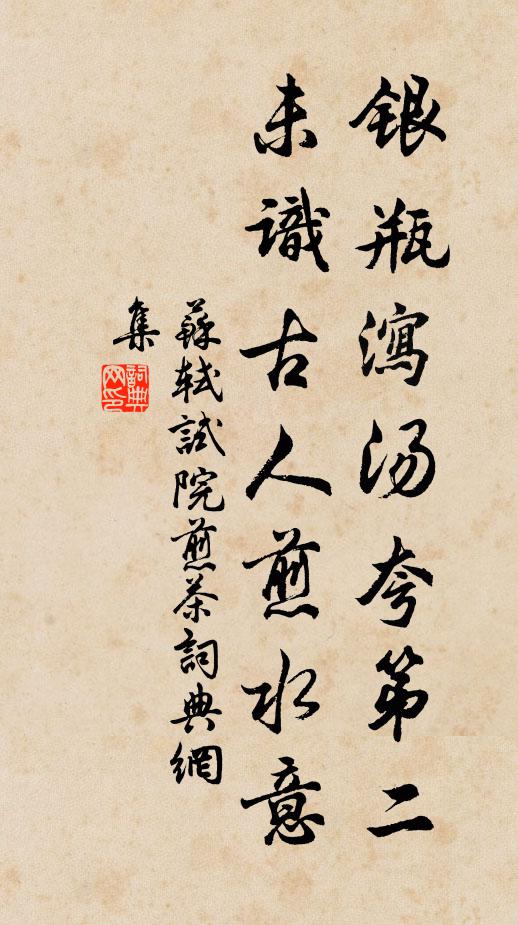 银瓶瀉汤夸第二
未識古人煎水意
蘇軾試院煎茶詞典網
集
詞典网印